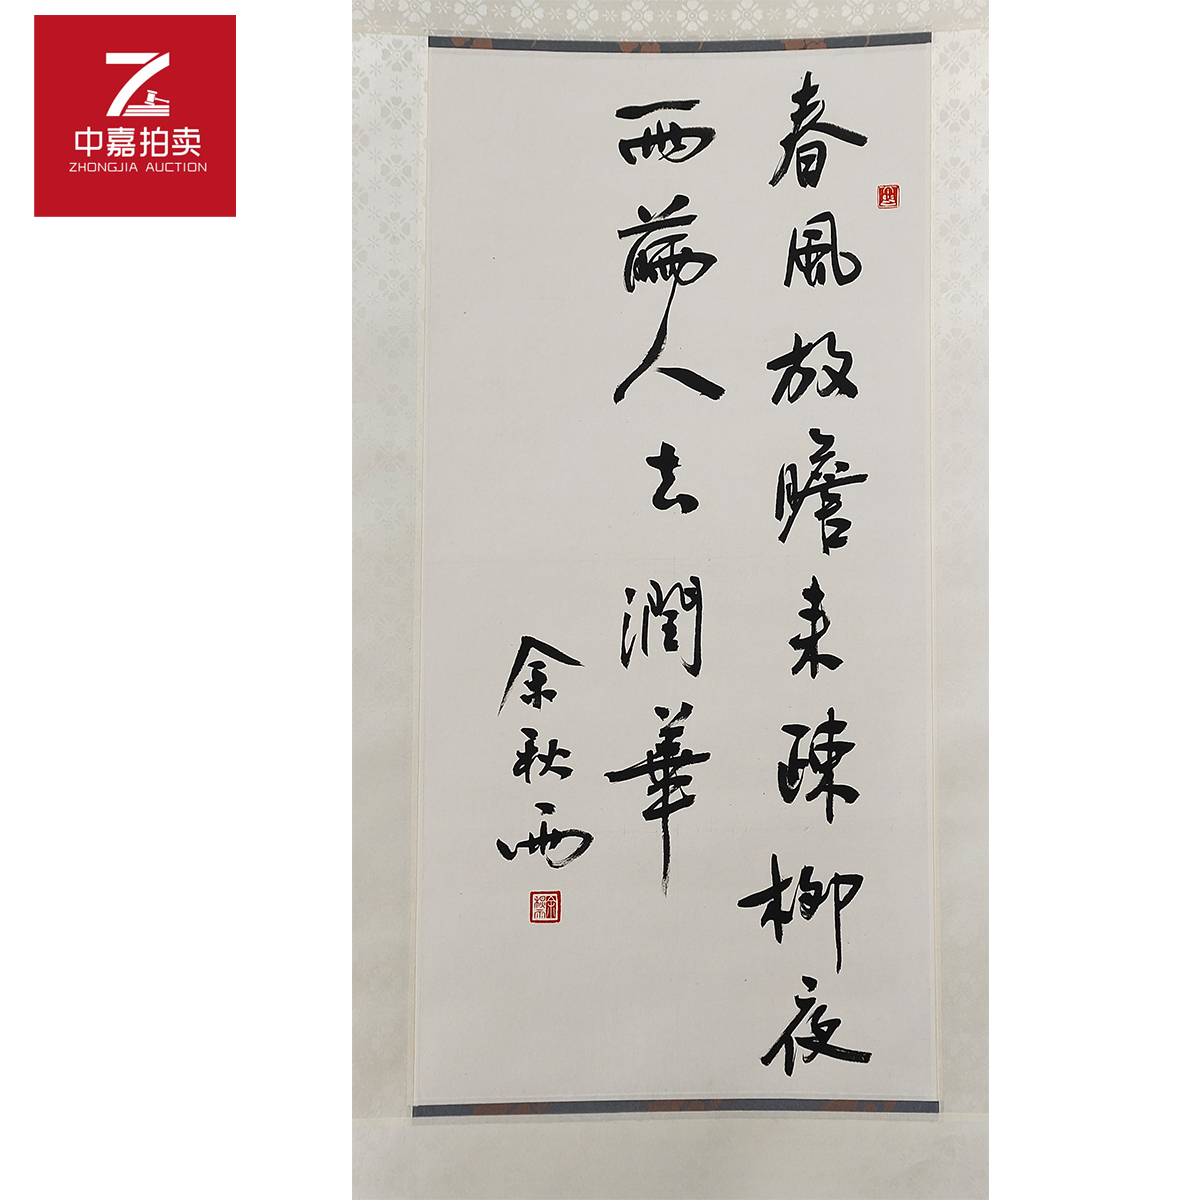 中嘉拍卖
ZHONGJIA AUCTION
春風放膽来疎柳夜
雨㒼人去潤華
余秋雨